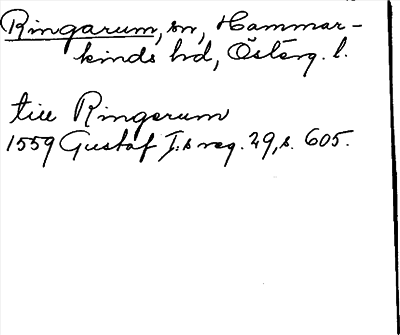 Ringarum, sn, Hammar-
kinds hd, Österg. l.
till Ringerum
1559 Gustaf I:s reg. 29, s. 605.